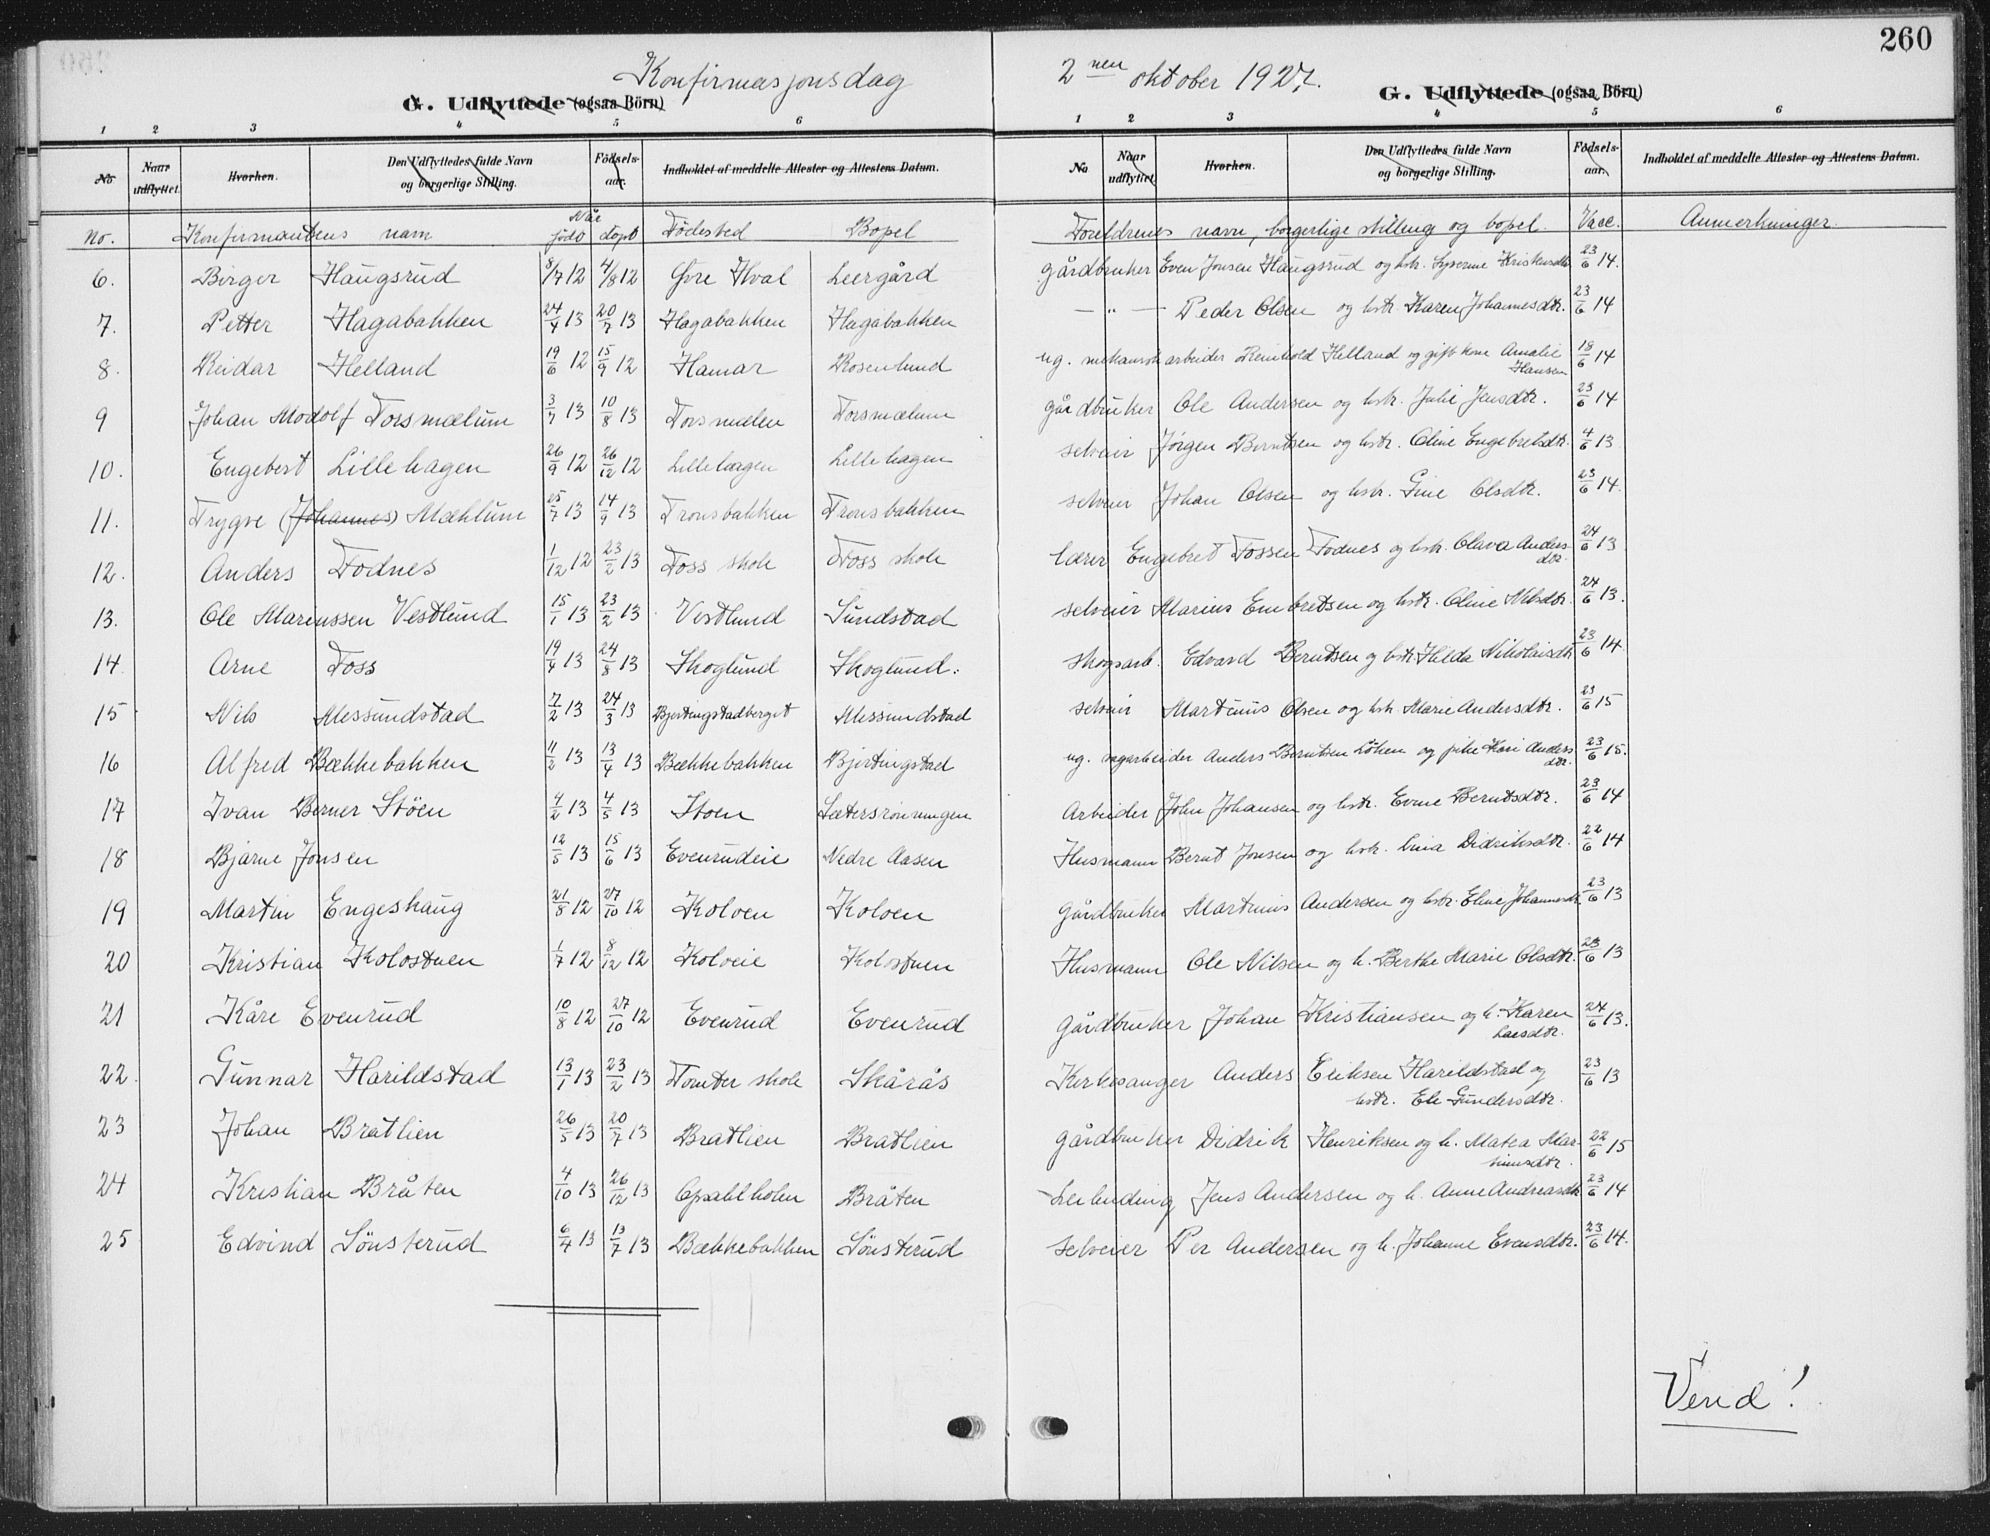 260
Konfirmasjonsdag 2nen oktober 1927.
G. Udflyttede (ogsaa Börn) G. Udflyttede (ogsaa Börn)
1 2 3 4 5 6 1 2 3 4 5 6
No Naar udflyttet. Hvorhen. Den Udflyttedes fulde Navn og borgerlige Stilling. Födsels-aar. Indholdet af meddelte Attester og Attestens Datum. No Naar udflyttet Hvorhen. Den Udflyttedes fulde Navn og borgerlige Stilling. Födsels-aar. Indholdet af meddelte Attester og Attestens Datum.
No. Konfirmantens navn Når født døpt Fødested Bopel Foreldrenes navn, borgerlige stilling og bopel. Vacc. Anmerkninger.
6. Birger Haugsrud 8/7 12 4/8 12 Øvre Hval Leergård gårdbruker Even Jonsen Haugsrud og hstr. Kristensdtr. 23/6 14.
7. Petter Hagabakken 24/4 13 20/7 13 Hagabakken Hagabakken — " — Peder Olsen og hstr. Karen Johannesdtr. 23/6 14
8. Reidar Helland 19/6 12 15/9 12 Hamar Rosenlund ug. mekanisk arbeider Reinhold Helland og gift kone Amalie Hansen 18/6 14
9 Johan Modolf Forsmælum 3/7 13 10/8 13 Forsmælen Forsmælum gårdbruker Ole Andersen og hstr. Julie Jensdtr. 23/6 14
10. Engebert Lillehagen 26/9 12 26/12 12 Lillehagen Lillehagen selveier Jørgen Berntsen og hstr. Oline Engebretsdtr. 4/6 13
11. Trygve (Johannes) Mæhlum 25/7 13 14/9 13 Tronsbakken Tronsbakken selveier Johan Olsen og hstr. Gine Olsdtr. 23/6 14.
12. Anders Fodnes 1/12 12 23/2 13 Foss skole Foss skole lærer Engebret Fossen Fodnes og hstr. Olava Andersdtr. 24/6 13
13. Ole Mariussen Vestlund 15/1 13 23/2 13 Vestlund Sundstad selveier Marius Embretsen og hstr. Oline Nilsdtr. 24/6 13.
14 Arne Foss 19/4 13 24/8 13 Skoglund Skoglund. skogsarb. Edvard Berntsen og hstr. Hilda Nikolaisdtr. 23/6 14.
15 Nils Messundstad 7/2 13 24/3 13 Bjertingstadberget Messundstad selveier Martinus Olsen og hstr. Marie Andersdtr. 23/6 15
16 Alfred Bækkebakken 11/2 13 13/4 13 Bækkebakken Bjertingstad ug. sagarbeider Anders Berntsen Løken og pike Kari Andersdtr. 23/6 15.
17 Ivan Berner Støen 4/2 13 4/5 13 Stoen Sætersrønningen Arbeider John Johansen og hstr. Evine Berntsdtr. 23/6 14
18 Bjarne Jonsen 12/5 13 15/6 13 Evenrudeie Nedre Aasen Husmann Bernt Jonsen og hstr. Lina Didriksdtr. 22/6 14
19 Martin Engeshaug 21/8 12 27/10 12 Kolven Kolven gårdbruker Martinus Andersen og hstr. Eline Johannesdtr. 23/6 13
20 Kristian Kolostuen 1/7 12 8/12 12 Kolveie Kolstuen Husmann Ole Nilsen og h. Berthe Marie Olsdtr. 23/6 13
21 Kåre Evenrud 10/8 12 27/10 12 Evenrud Evenrud gårdbruker Johan Kristiansen og h. Karen Larsdtr. 24/6 13.
22. Gunnar Harildstad 13/1 13 23/2 13 Tomter skole Skårås Kirkesanger Anders Eriksen Harildstad og hstr. Eli Gundersdtr. 23/6 13
23 Johan Bratlien 26/5 13 20/7 13 Bratlien Bratlien gårdbruker Didrik Henriksen og h. Matea Marinusdtr. 22/6 15
24 Kristian Bråten 4/10 13 26/12 13 Opsahlholen Bråten Leilending Jens Andersen og h. Anne Andreasdtr. 23/6 14
25 Edvind Sønsterud 6/4 13 13/7 13 Bækkebakken Sønsterud selveier Per Andersen og h. Johanne Evensdtr. 23/6 14.
Vend!